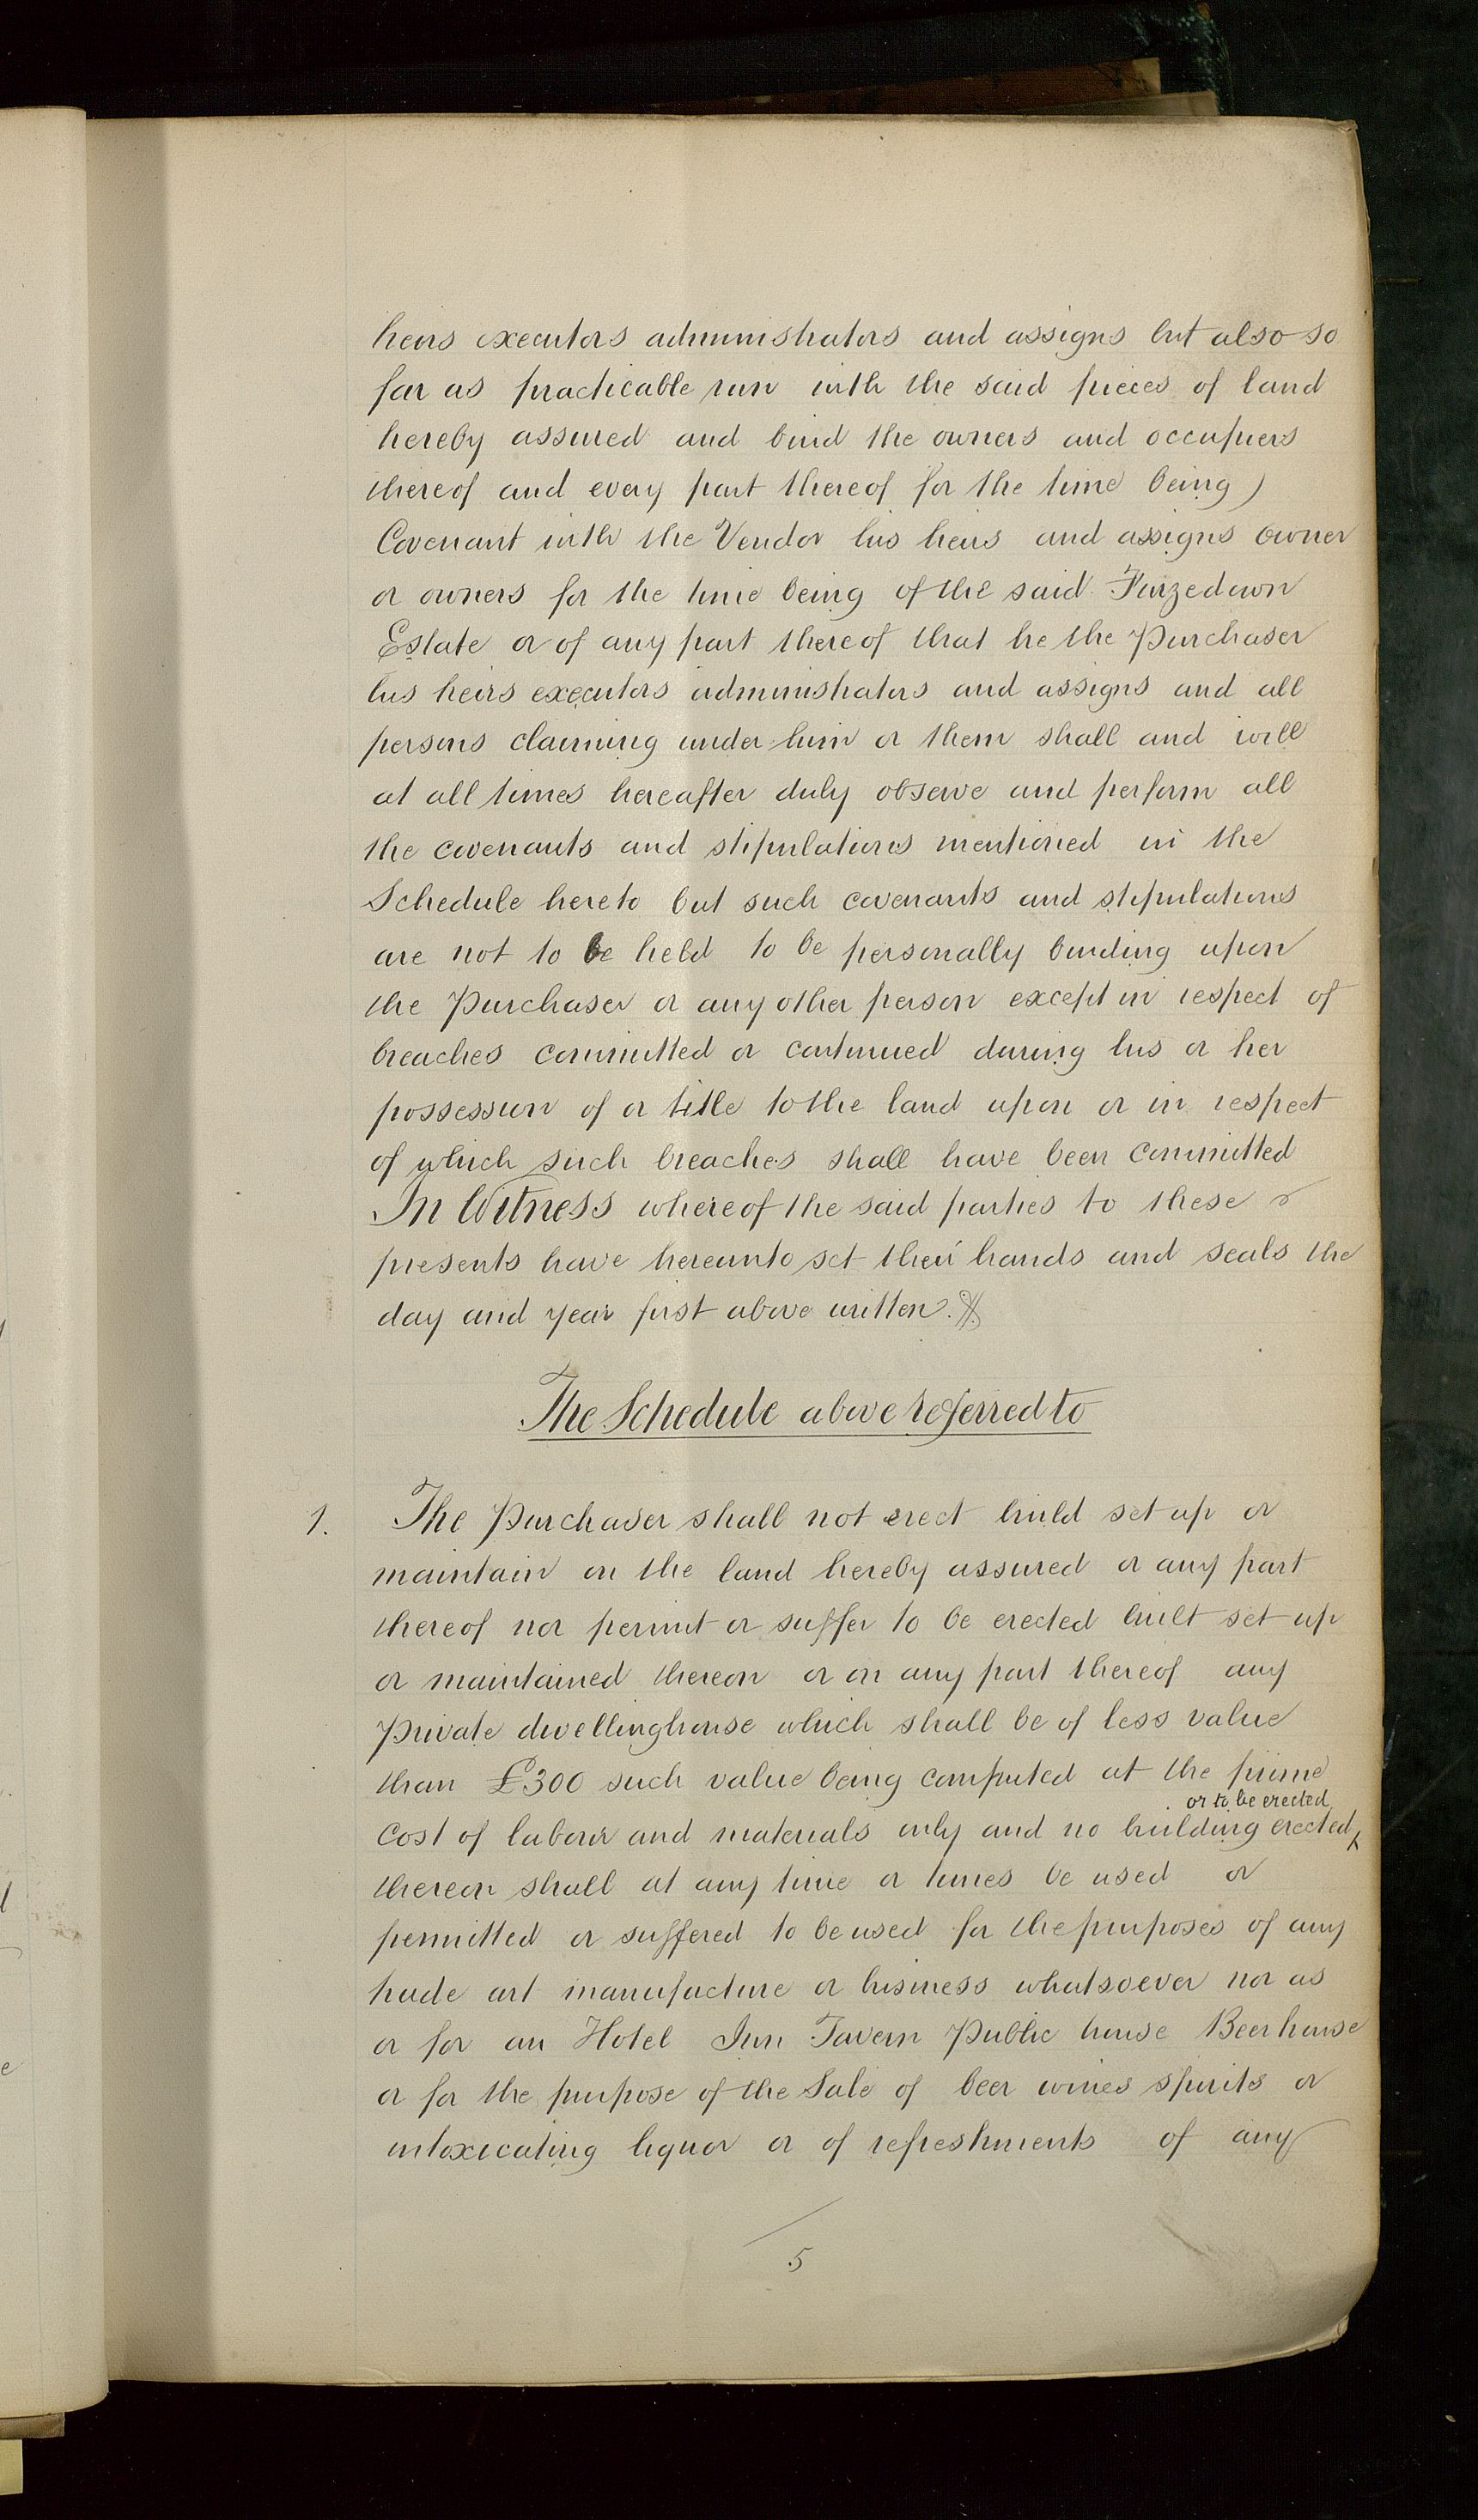 heirs executors administrators and assigns but also so
far as practicable run with the said pieces of land
hereby assured and bind the owners and occupiers
thereof and every part thereof for the time being)
Covenant with the Vendor his heirs and assigns owner
or owners for the time being of the said Furzedown
Estate or of any part thereof that he the Purchaser
his heirs executors administrators and assigns and all
persons claiming under him or them shall and will
at all times hereafter duly observe and perform all
the covenants and stipulations mentioned in the
Schedule hereto but such covenants and stipulations
are not to be held to be personally binding upon
the Purchaser or any other person except in respect of
breaches committed or continued during his or her
possession of or title to the land upon or in respect
of which such breaches shall have been committed
In Witness whereof the said parties to these
presents have hereunto set their hands and seals the
day and year first above written.
The Schedule above referred to
1. The Purchaser shall not erect build set up or
maintain on the land hereby assured or any part
thereof nor permit or suffer to be erected built set up
or maintained thereon or on any part thereof any
Private dwellinghouse which shall be of less value
than £300 such value being computed at the prime
or to be erected
cost of labour and materials only and no building erected
thereon shall at any time or times be used or
permitted or suffered to be used for the purposes of any
trade art manufacture or business whatsoever nor as
or for an Hotel Inn Tavern Public house Beerhouse
or for the purpose of the Sale of beer wines spirits or
intoxicating liquor or of refreshments of any
5